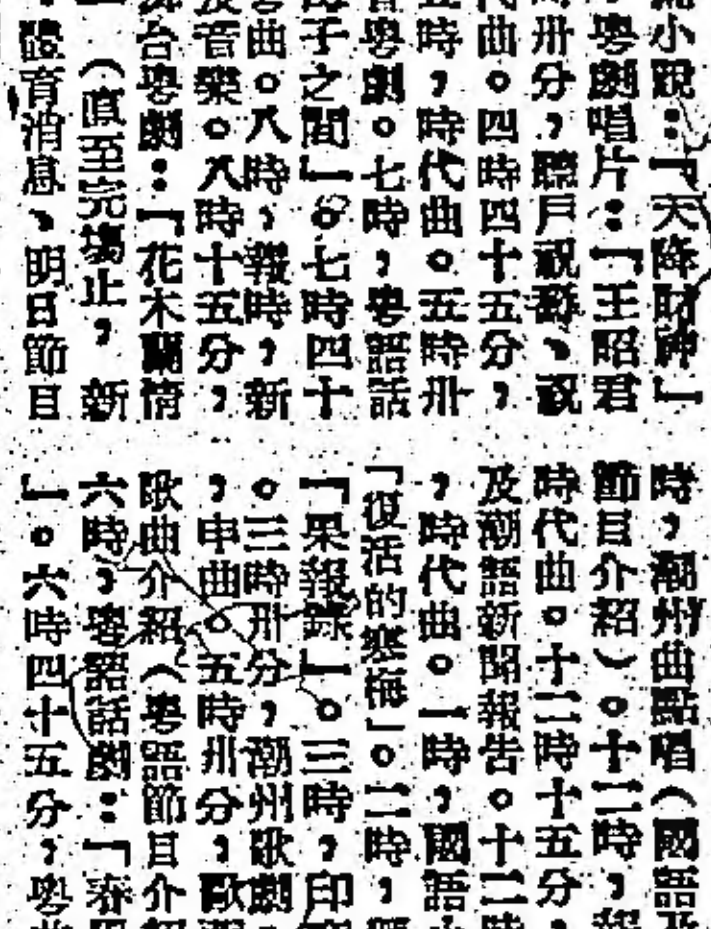 點小說：「天降財神」
，粵劇唱片：「王昭君
卅分，聽戶祝壽、祝
代曲。四時四十五分，
五時，時代曲。五時卅
粵劇。七時，粵語話
母子之間」。七時四十
曲。八時，報時，新
音樂。八時十五分，
台粵劇：「花木蘭情
」（直至完場止，新
、體育消息、明日節目
時，潮州曲點唱（國語及
節目介紹）。十二時，報
時代曲。十二時十五分，
及潮語新聞報告。十二時
，時代曲。一時，國語小
「復活的寒梅」。二時，
「果報錄」。三時，印
。三時卅分，潮州歌劇
，申曲。五時卅分，歐
歌曲介紹（粵語節目介紹
六時，粵語話劇：「春
」。六時四十五分，粵曲